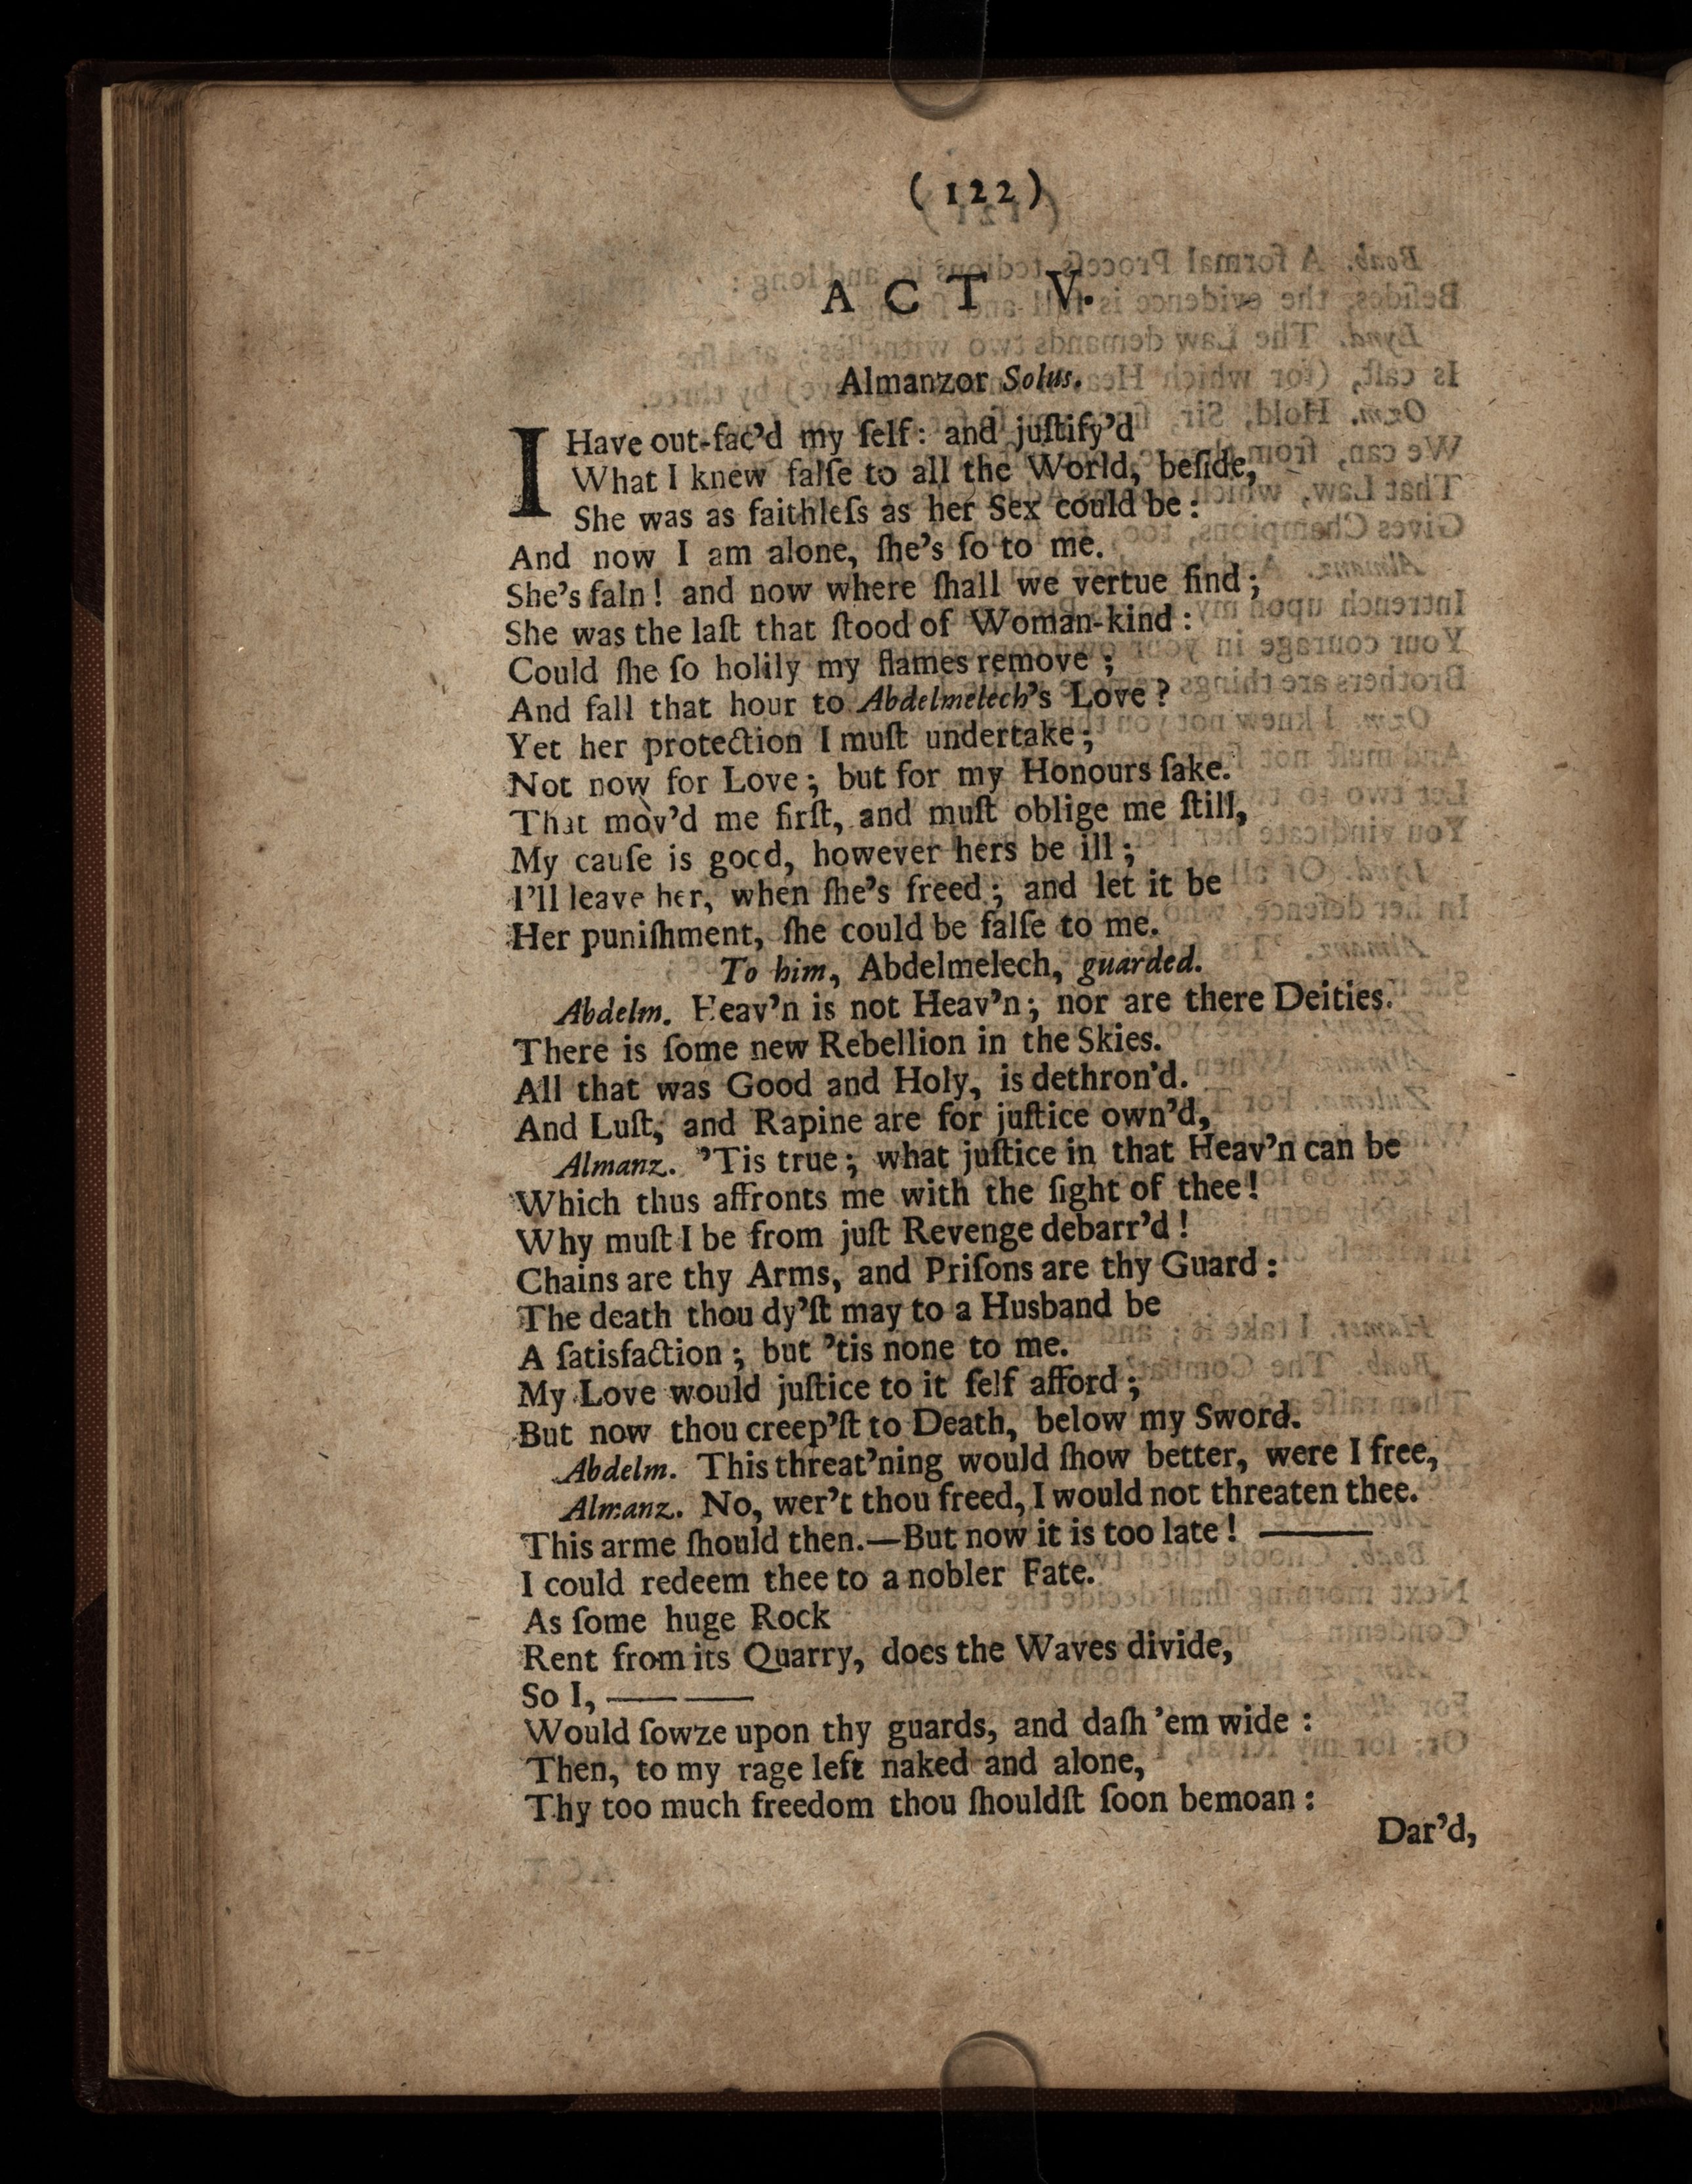 ( 122 )
ACT V.
Almanzor Solus.
I Have out-fac'd my ſelf: and juſtify'd
What I knew falſe to all the World, beſide,
She was as faithleſs as her Sex could be :
And now I am alone, ſhe's ſo to me.
She's faln! and now where ſhall we vertue find ;
She was the laſt that ſtood of Woman-kind :
Could ſhe ſo holily my flames remove ;
And fall that hour to Abdelmelech's Love ?
Yet her protection I muſt undertake ;
Not now for Love ; but for my Honours ſake.
That mov'd me firſt, and muſt oblige me ſtill,
My cauſe is good, however hers be ill ;
I'll leave her, when ſhe's freed ; and let it be
Her puniſhment, ſhe could be falſe to me.
To him, Abdelmelech, guarded.
Abdelm. Heav'n is not Heav'n ; nor are there Deities.
There is ſome new Rebellion in the Skies.
All that was Good and Holy, is dethron'd.
And Luſt, and Rapine are for juſtice own'd,
Almanz. 'Tis true ; what juſtice in that Heav'n can be
Which thus affronts me with the ſight of thee !
Why muſt I be from juſt Revenge debarr'd !
Chains are thy Arms, and Priſons are thy Guard :
The death thou dy'ſt may to a Husband be
A ſatisfaction ; but 'tis none to me.
My Love would juſtice to it ſelf afford ;
But now thou creep'ſt to Death, below my Sword.
Abdelm. This threat'ning would ſhow better, were I free,
Almanz. No, wer't thou freed, I would not threaten thee.
This arme ſhould then.—But now it is too late ! ———
I could redeem thee to a nobler Fate.
As ſome huge Rock
Rent from its Quarry, does the Waves divide,
So I, —— ——
Would ſowze upon thy guards, and daſh 'em wide :
Then, to my rage left naked and alone,
Thy too much freedom thou ſhouldſt ſoon bemoan :
Dar'd,